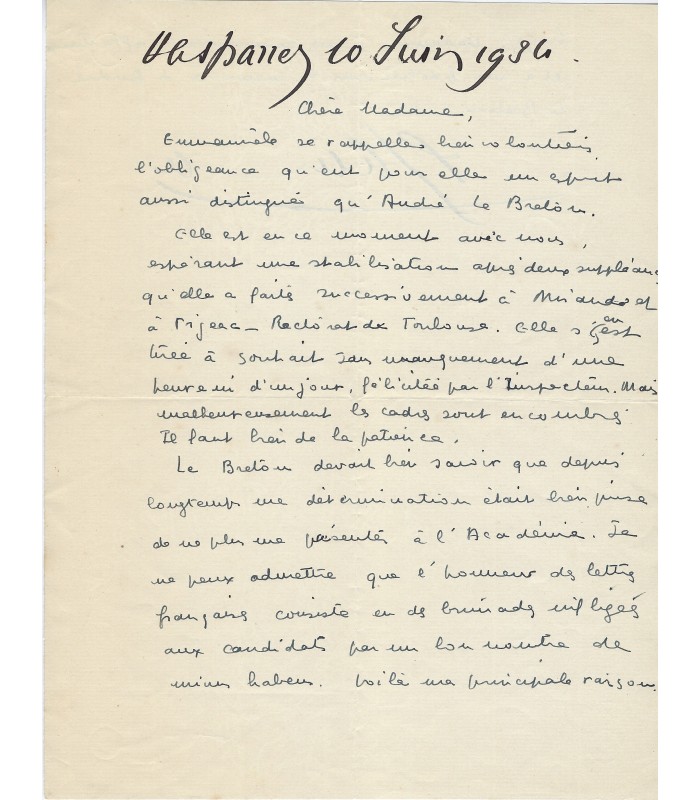 Hasparren 10 Juin 1934.
Chère Madame,
Emmanuèle se rappelle bien volontiers
l'obligeance qu'eut pour elle un esprit
aussi distingué qu'André Le Breton.
Elle est en ce moment avec nous,
espérant une stabilisation après deux suppléanc
qu'elle a faites successivement à Mirande et
à Figeac – Rectorat de Toulouse. Elle s'en est
tirée à souhait sans manquement d'une
heure ni d'un jour, félicitée par l'Inspecteur. Mais
malheureusement les cadres sont encombrés.
Il faut bien de la patience.
Le Breton devait bien savoir que depuis
longtemps ma détermination était bien prise
de ne plus me présenter à l'Académie. Je
ne peux admettre que l'honneur des lettres
françaises consiste en des brimades infligées
aux candidats par un bon nombre de
minus habens. Voilà ma principale raison.